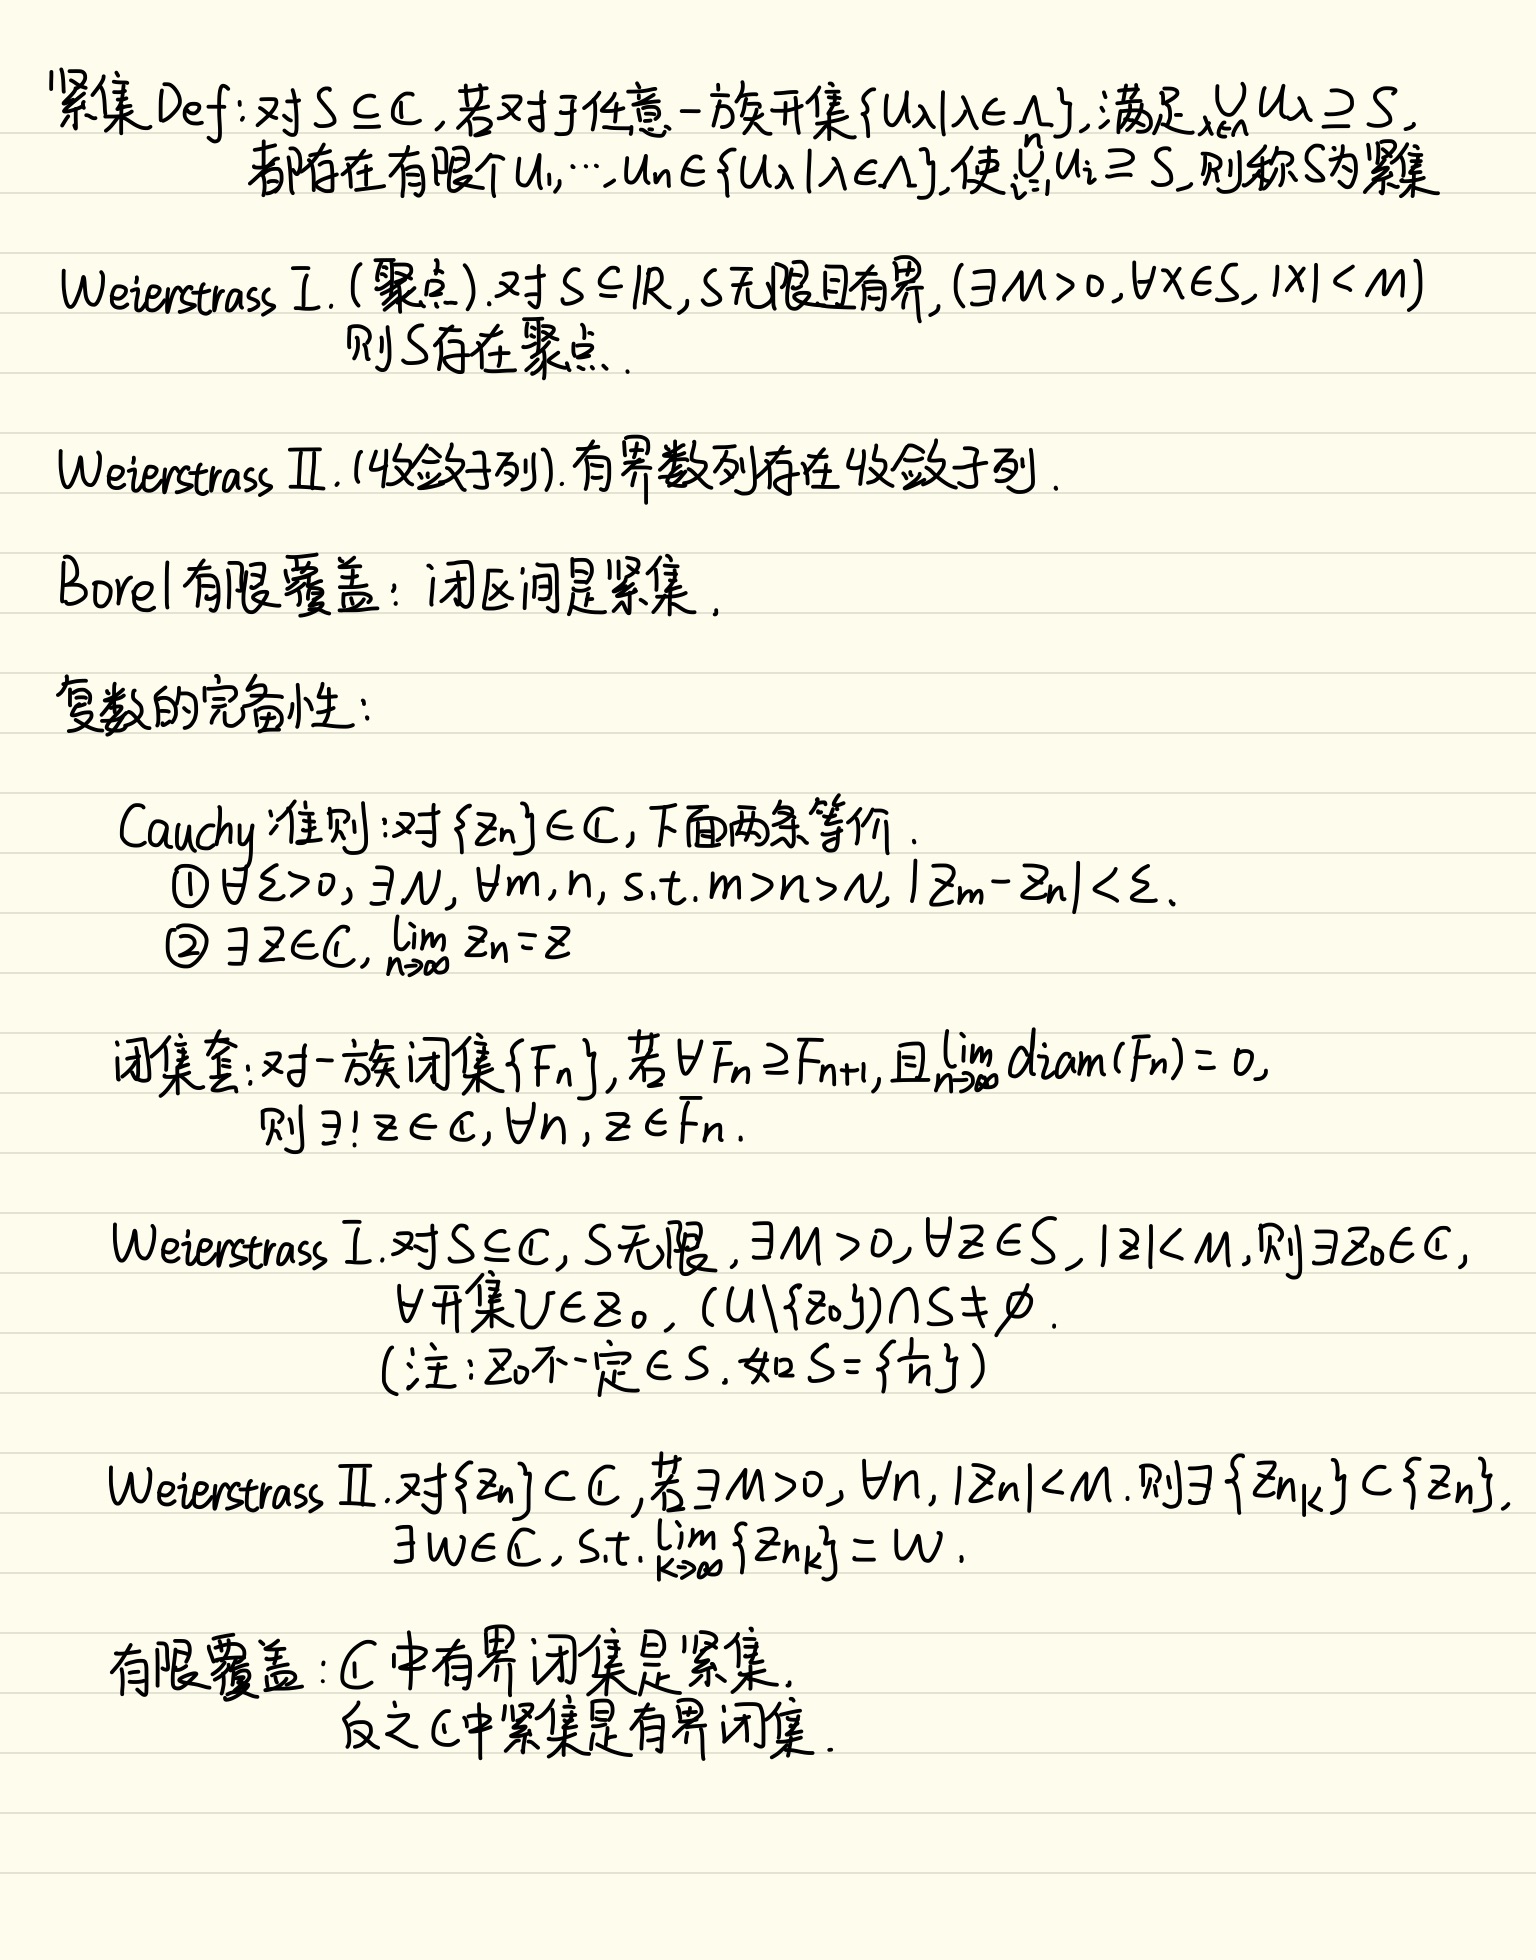 紧集 Def: 对 S ⊆ ℂ, 若对于任意一族开集 {U_λ | λ∈Λ}, 满足 ⋃_{λ∈Λ} U_λ ⊇ S,
都存在有限个 U_1, ⋯, U_n ∈ {U_λ | λ∈Λ}, 使 ⋃_{i=1}^{n} U_i ⊇ S, 则称 S 为紧集
Weierstrass Ⅰ. (聚点). 对 S ⊆ ℝ, S 无限且有界, (∃M>0, ∀x∈S, |x|<M)
则 S 存在聚点.
Weierstrass Ⅱ. (收敛子列). 有界数列存在收敛子列.
Borel 有限覆盖: 闭区间是紧集.
复数的完备性:
Cauchy 准则: 对 {z_n} ∈ ℂ, 下面两条等价.
① ∀ε>0, ∃N, ∀m, n, s.t. m>n>N, |z_m - z_n| < ε.
② ∃z∈ℂ, lim_{n→∞} z_n = z
闭集套: 对一族闭集 {F_n}, 若 ∀F_n ⊇ F_{n+1}, 且 lim_{n→∞} diam(F_n) = 0,
则 ∃! z∈ℂ, ∀n, z∈F_n.
Weierstrass Ⅰ. 对 S ⊆ ℂ, S 无限, ∃M>0, ∀z∈S, |z|<M, 则 ∃z_0∈ℂ,
∀开集 U∈z_0, (U\{z_0})∩S ≠ ∅.
(注: z_0 不一定∈S. 如 S = {1/n})
Weierstrass Ⅱ. 对 {z_n} ⊂ ℂ, 若 ∃M>0, ∀n, |z_n|<M. 则 ∃{z_{n_k}} ⊂ {z_n},
∃w∈ℂ, s.t. lim_{k→∞} {z_{n_k}} = w.
有限覆盖: ℂ 中有界闭集是紧集.
反之 ℂ 中紧集是有界闭集.